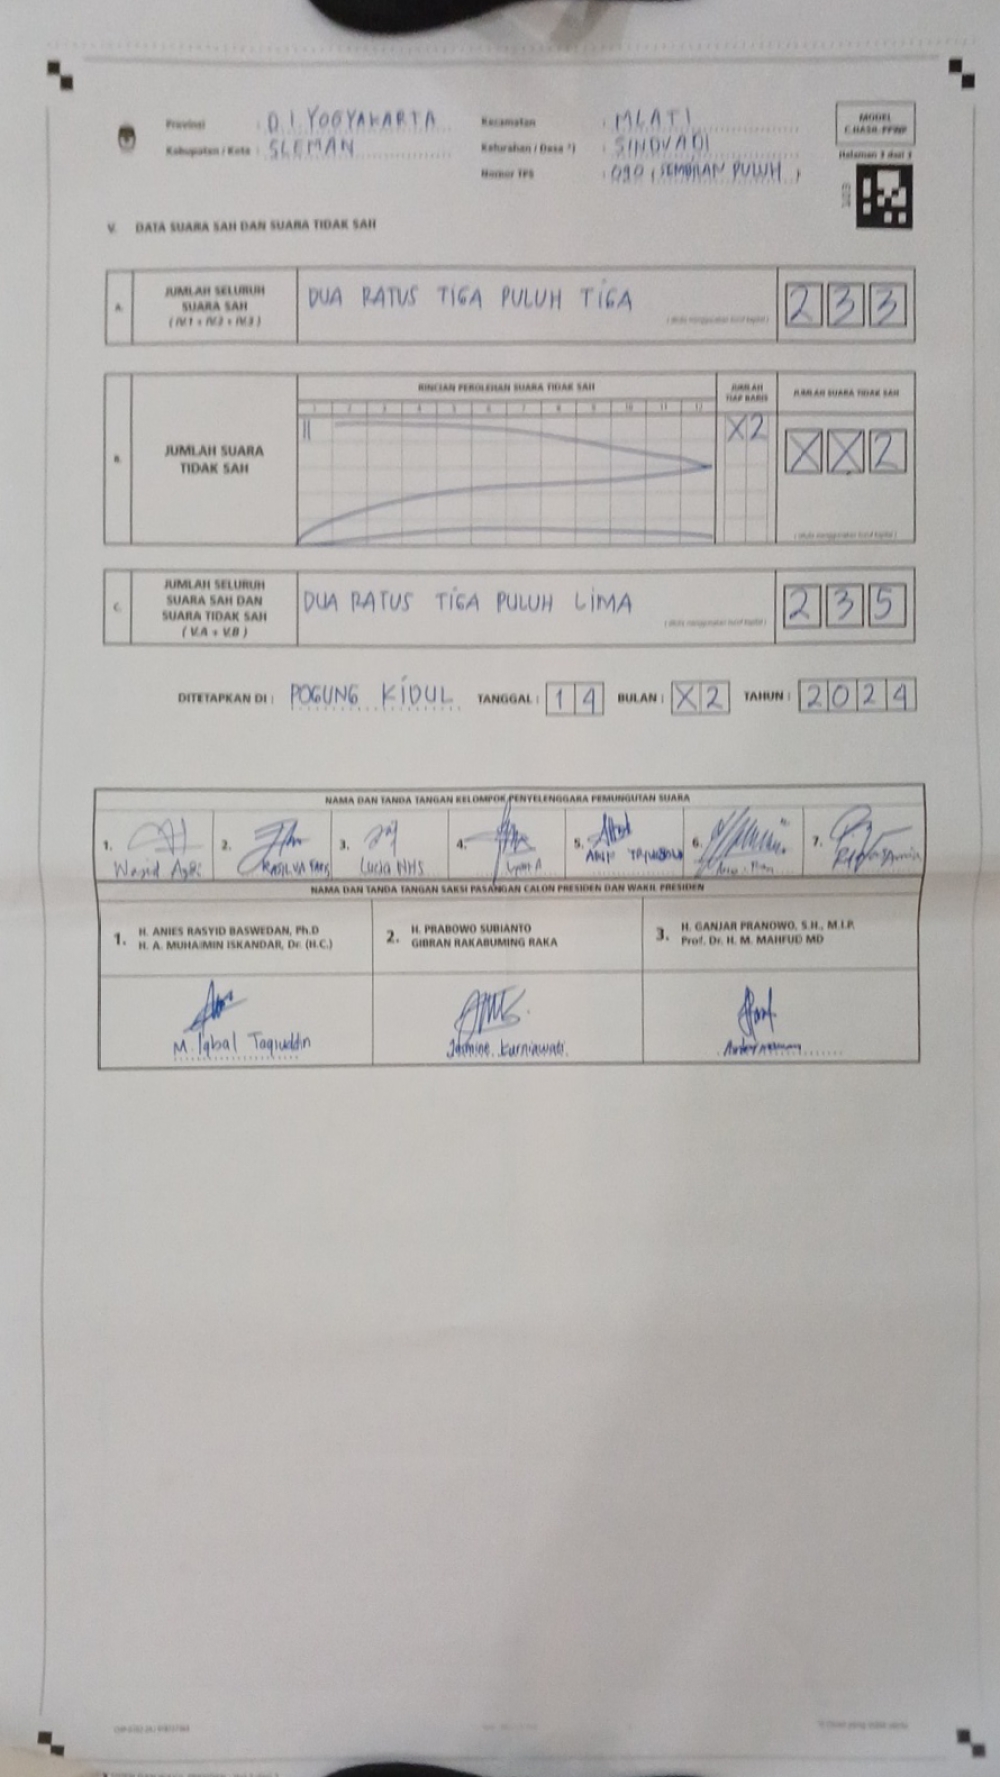 Provinsi : D.I. YOGYAKARTA
Kabupaten / Kota : SLEMAN
Kecamatan : MLATI
Kelurahan / Desa *) : SINDUADI
Nomor TPS : 090 ( SEMBILAN PULUH )
MODEL
C.HASIL-PPWP
Halaman 3 dari 3
V. DATA SUARA SAH DAN SUARA TIDAK SAH
A. JUMLAH SELURUH SUARA SAH ( IV.1 + IV.2 + IV.3 ) DUA RATUS TIGA PULUH TIGA 2 3 3
( ditulis menggunakan huruf kapital )
RINCIAN PEROLEHAN SUARA TIDAK SAH
JUMLAH TIAP BARIS
JUMLAH SUARA TIDAK SAH
1 2 3 4 5 6 7 8 9 10 11 12
B. JUMLAH SUARA TIDAK SAH II X2 X X 2
( ditulis menggunakan huruf kapital )
C. JUMLAH SELURUH SUARA SAH DAN SUARA TIDAK SAH ( V.A + V.B ) DUA RATUS TIGA PULUH LIMA 2 3 5
( ditulis menggunakan huruf kapital )
DITETAPKAN DI : POGUNG KIDUL TANGGAL : 1 4 BULAN : X 2 TAHUN : 2 0 2 4
NAMA DAN TANDA TANGAN KELOMPOK PENYELENGGARA PEMUNGUTAN SUARA
1. 2. 3. 4. 5. 6. 7.
Lucia NHS
NAMA DAN TANDA TANGAN SAKSI PASANGAN CALON PRESIDEN DAN WAKIL PRESIDEN
1. H. ANIES RASYID BASWEDAN, Ph.D
H. A. MUHAIMIN ISKANDAR, Dr. (H.C.)
2. H. PRABOWO SUBIANTO
GIBRAN RAKABUMING RAKA
3. H. GANJAR PRANOWO, S.H., M.I.P.
Prof. Dr. H. M. MAHFUD MD
M. Iqbal Taqiuddin
Jasmine Kurniawati